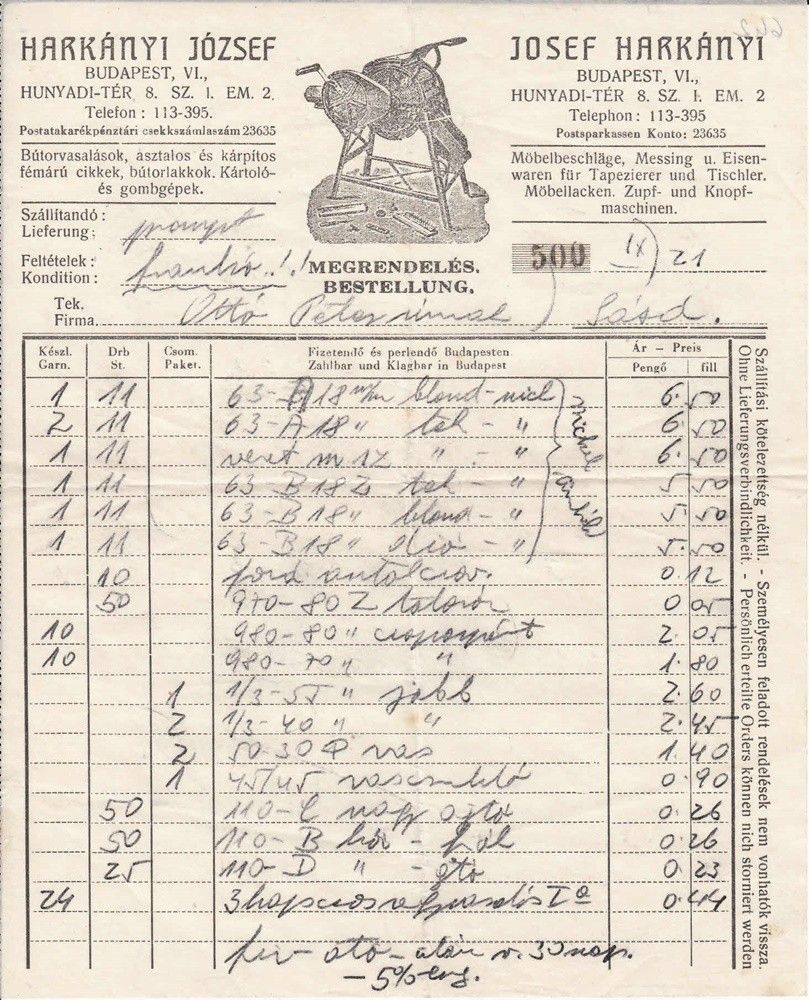 HARKÁNYI JÓZSEF
BUDAPEST, VI.,
HUNYADI-TÉR 8. SZ. I. EM. 2.
Telefon : 113-395.
Postatakarékpénztári csekkszámlaszám 23635
Bútorvasalások, asztalos és kárpitos
fémárú cikkek, bútorlakkok. Kártoló-
és gombgépek.
JOSEF HARKÁNYI
BUDAPEST, VI.,
HUNYADI-TÉR 8. SZ. I. EM. 2
Telephon : 113-395
Postsparkassen Konto : 23635
Möbelbeschläge, Messing u. Eisen-
waren für Tapezierer und Tischler.
Möbellacken. Zupf- und Knopf-
maschinen.
Szállítandó :
Lieferung : prompt
Feltételek :
Kondition : frankó..!.!
MEGRENDELÉS.
BESTELLUNG.
500 IX) 21
Tek.
Firma Ottó Péter úrnak Sásd.
Készl. Garn.
Drb St.
Csom. Paket.
Fizetendő és perlendő Budapesten.
Zahlbar und Klagbar in Budapest
Ár — Preis
Pengő fill
1 11 63- 18 m/m blond-nick 6.50
2 11 63-A 18 " - " 6.50
1 11 veret m 12 " - " 6.50
1 11 63-B 18 - " 5.50
1 11 63-B 18 " blond - " 5.50
1 11 63-B 18 " dió - " 5.50
nickel
10 0.12
50 970-80 Z 0 05
10 980-80 " 2.05
10 980-70 " " 1.80
1 1/3-55 " jobb 2.60
2 1/3-40 " " 2.45
2 50 30 vas 1.40
1 45/45 0.90
50 110-C nagy 0.26
50 110-B - 0.26
25 110-D " - 0.23
24 3 kapcsos Iª 0.44
30 nap.
- 5%
Szállítási kötelezettség nélkül. - Személyesen feladott rendelések nem vonhatók vissza.
Ohne Lieferungsverbindlichkeit. - Persönlich erteilte Orders können nich storniert werden